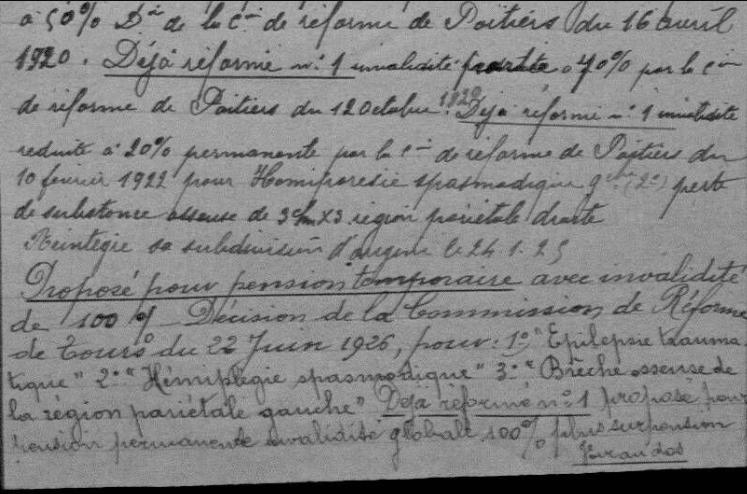 à 50% Don de la Con de réforme de Poitiers du 16 avril
1920. Déjà réformé n: 1 invalidité portée à 70% par la Con
de réforme de Poitiers du 12 Octobre 1920. Déjà réformé n: 1 invalidité
réduite à 20% permanente par la Con de réforme de Poitiers du
10 février 1922 pour Hémiparésie spasmodique gche (2e) perte
de substance osseuse de 3c/m X3 région pariétale droite
Réintégré sa subdivision d'origine le 24.1.25
Proposé pour pension temporaire avec invalidité
de 100% Décision de la Commission de Réforme
de Tours du 22 Juin 1926, pour: 1o "Epilepsie trauma-
tique" 2o "Hémiplégie spasmodique" 3o "Brèche osseuse de
la région pariétale gauche" Déjà réformé n: 1 proposé pour
pension permanente invalidité globale 100% plus surpension